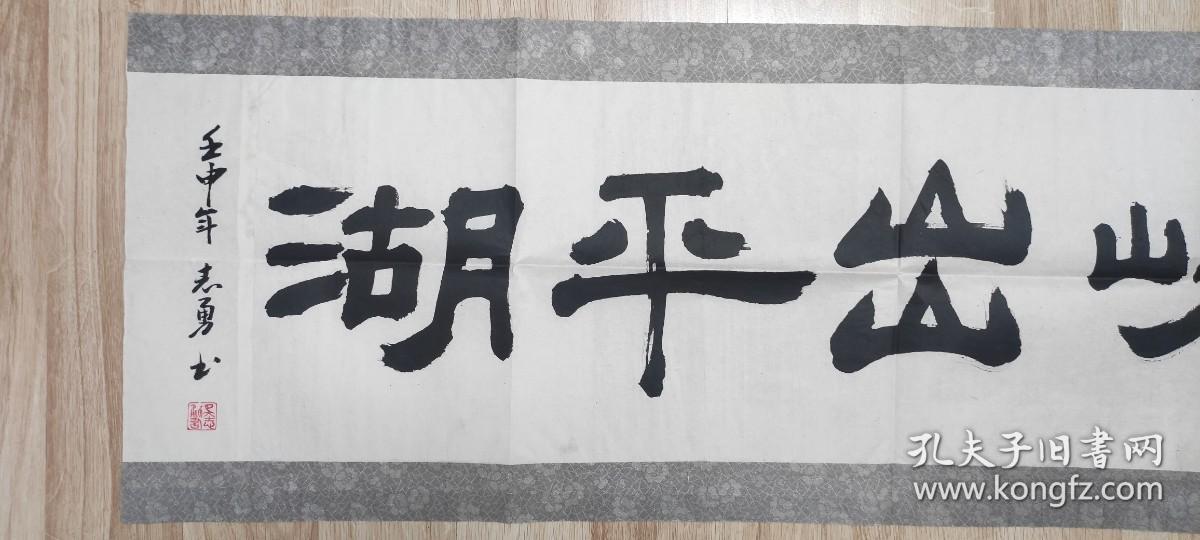 出平湖
壬申年 志勇书
孔夫子旧书网
www.kongfz.com